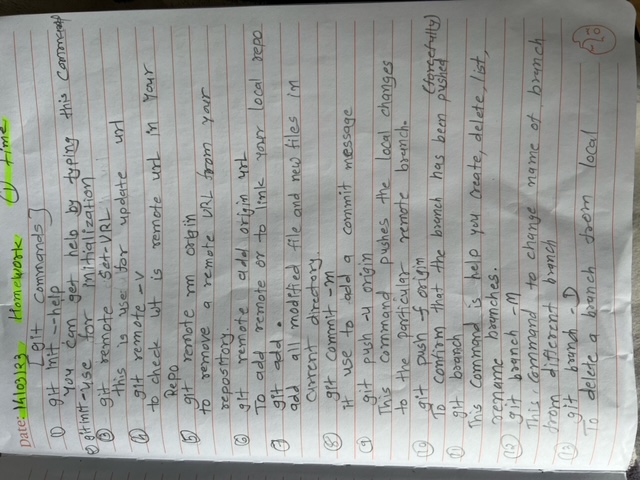 Date: 14/03/23 Homework ① time
[git Commands]
① git init --help
You can get help by typing this command
② git init - use for initialization
③ git remote set-URL
this is use for update url
④ git remote -v
to check wt is remote url in your
Repo
⑤ git remote rm origin
to remove a remote URL from your
repository.
⑥ git remote add origin url
To add remote or to link your local repo
⑦ git add .
add all modified file and new files in
current directory.
⑧ git commit -m
it use to add a commit message
⑨ git push -u origin
This command pushes the local changes
to the particular remote branch.
⑩ git push -f origin (forcefully)
To confirm that the branch has been pushed
⑪ git branch
This command is help you create, delete, list,
rename branches.
⑫ git branch -M
This command to change name of branch
from different branch
⑬ git branch -D
To delete a branch from local